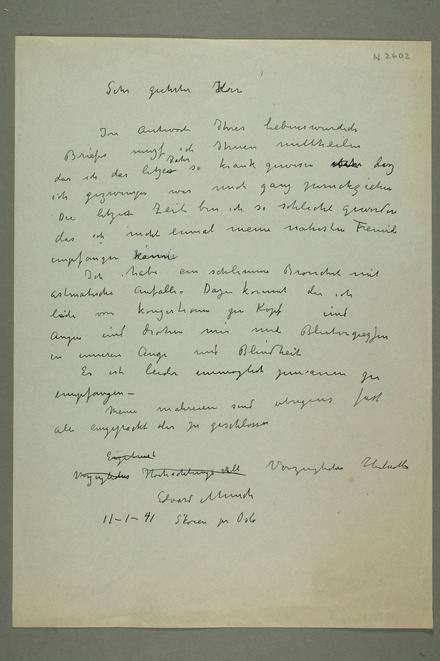 N 2602
Sehr geehrter Herr
Im Antwords Ihres liebenswürdich
Briefs muss ich Ihnen mittheilen
das ich das letzte Jahr so krank gewesen das
ich gezwungen war mich ganz zurückziehen
Die letzte Zeit bin ich so schlecht geworden
das ich nicht einmal meine nahesten Freunde
empfangen könne
Ich habe ein schlimme Bronchit mit
astmatische Anfälle. Dazu kommt das ich
leide von Kongestionen zu Kopf und
Augen und drohen mir mit Blutergüssen
in inneren Auge und Blindheit
Es ist leider unmöglich jemanden zu
empfangen –
Meine malereien sind übrigens fast
alle eingepackt oder zugeschlossen
Vorzügliches Hochachtungsvoll
Edvard Munch
11–1–41 Skøien pr Oslo